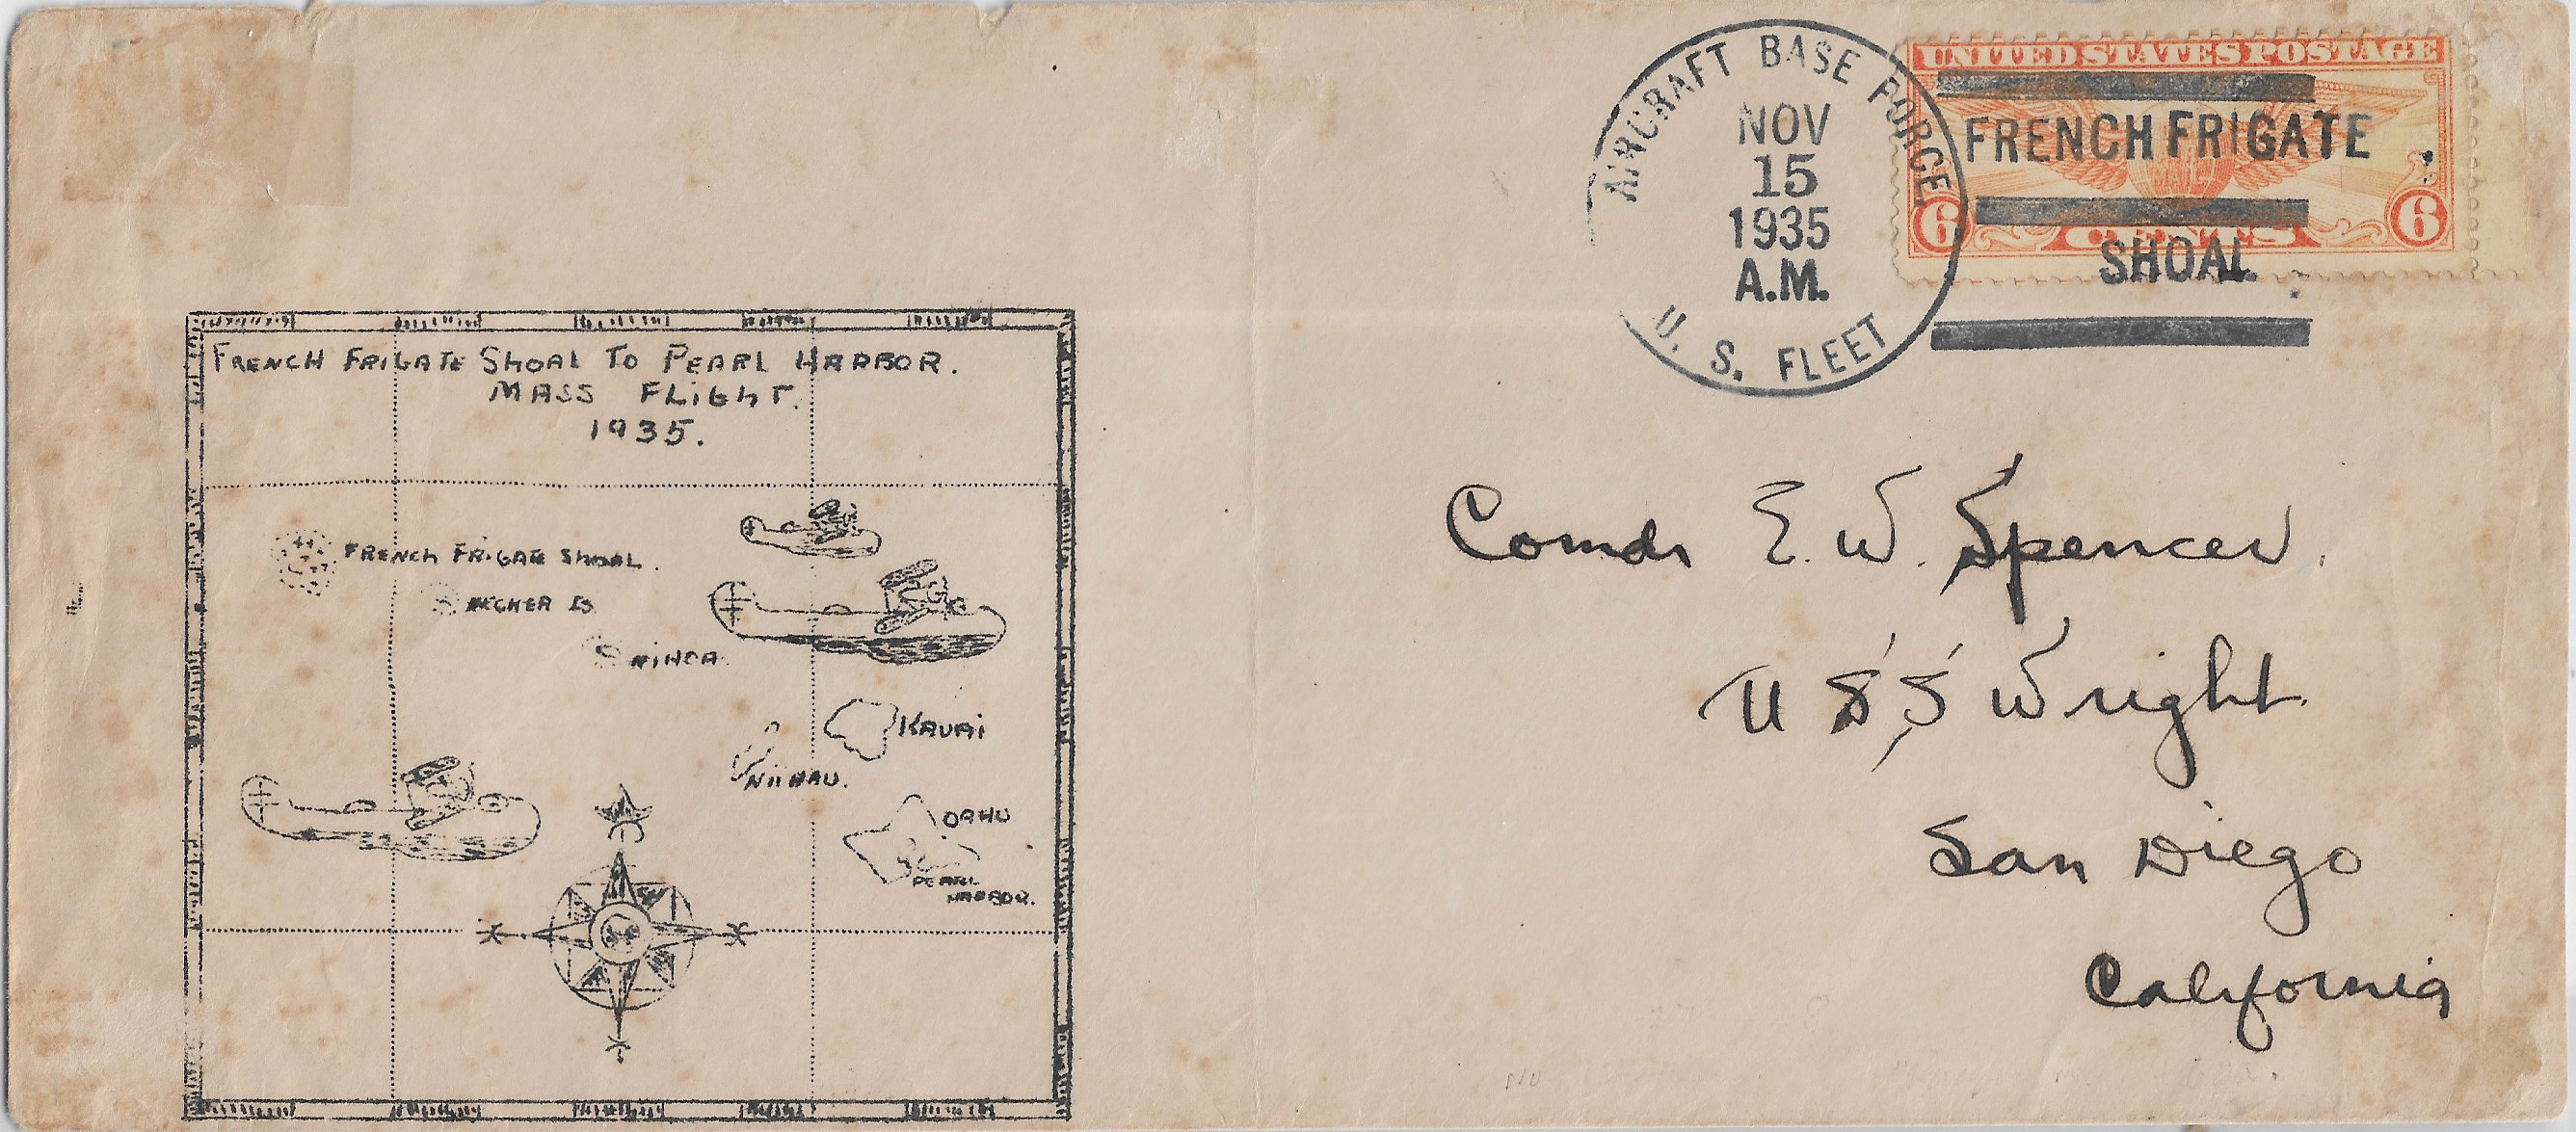 UNITED STATES POSTAGE
6 CENTS 6
AIRCRAFT BASE FORCE
NOV
15
1935
A.M.
U. S. FLEET
FRENCH FRIGATE
SHOAL
FRENCH FRIGATE SHOAL TO PEARL HARBOR.
MASS FLIGHT.
1935.
FRENCH FRIGATE SHOAL.
NECKER IS
NIHOA.
KAUAI
NIIHAU.
OAHU
PEARL
HARBOR.
Comdr E. W. Spencer.
U S S Wright
San Diego
California